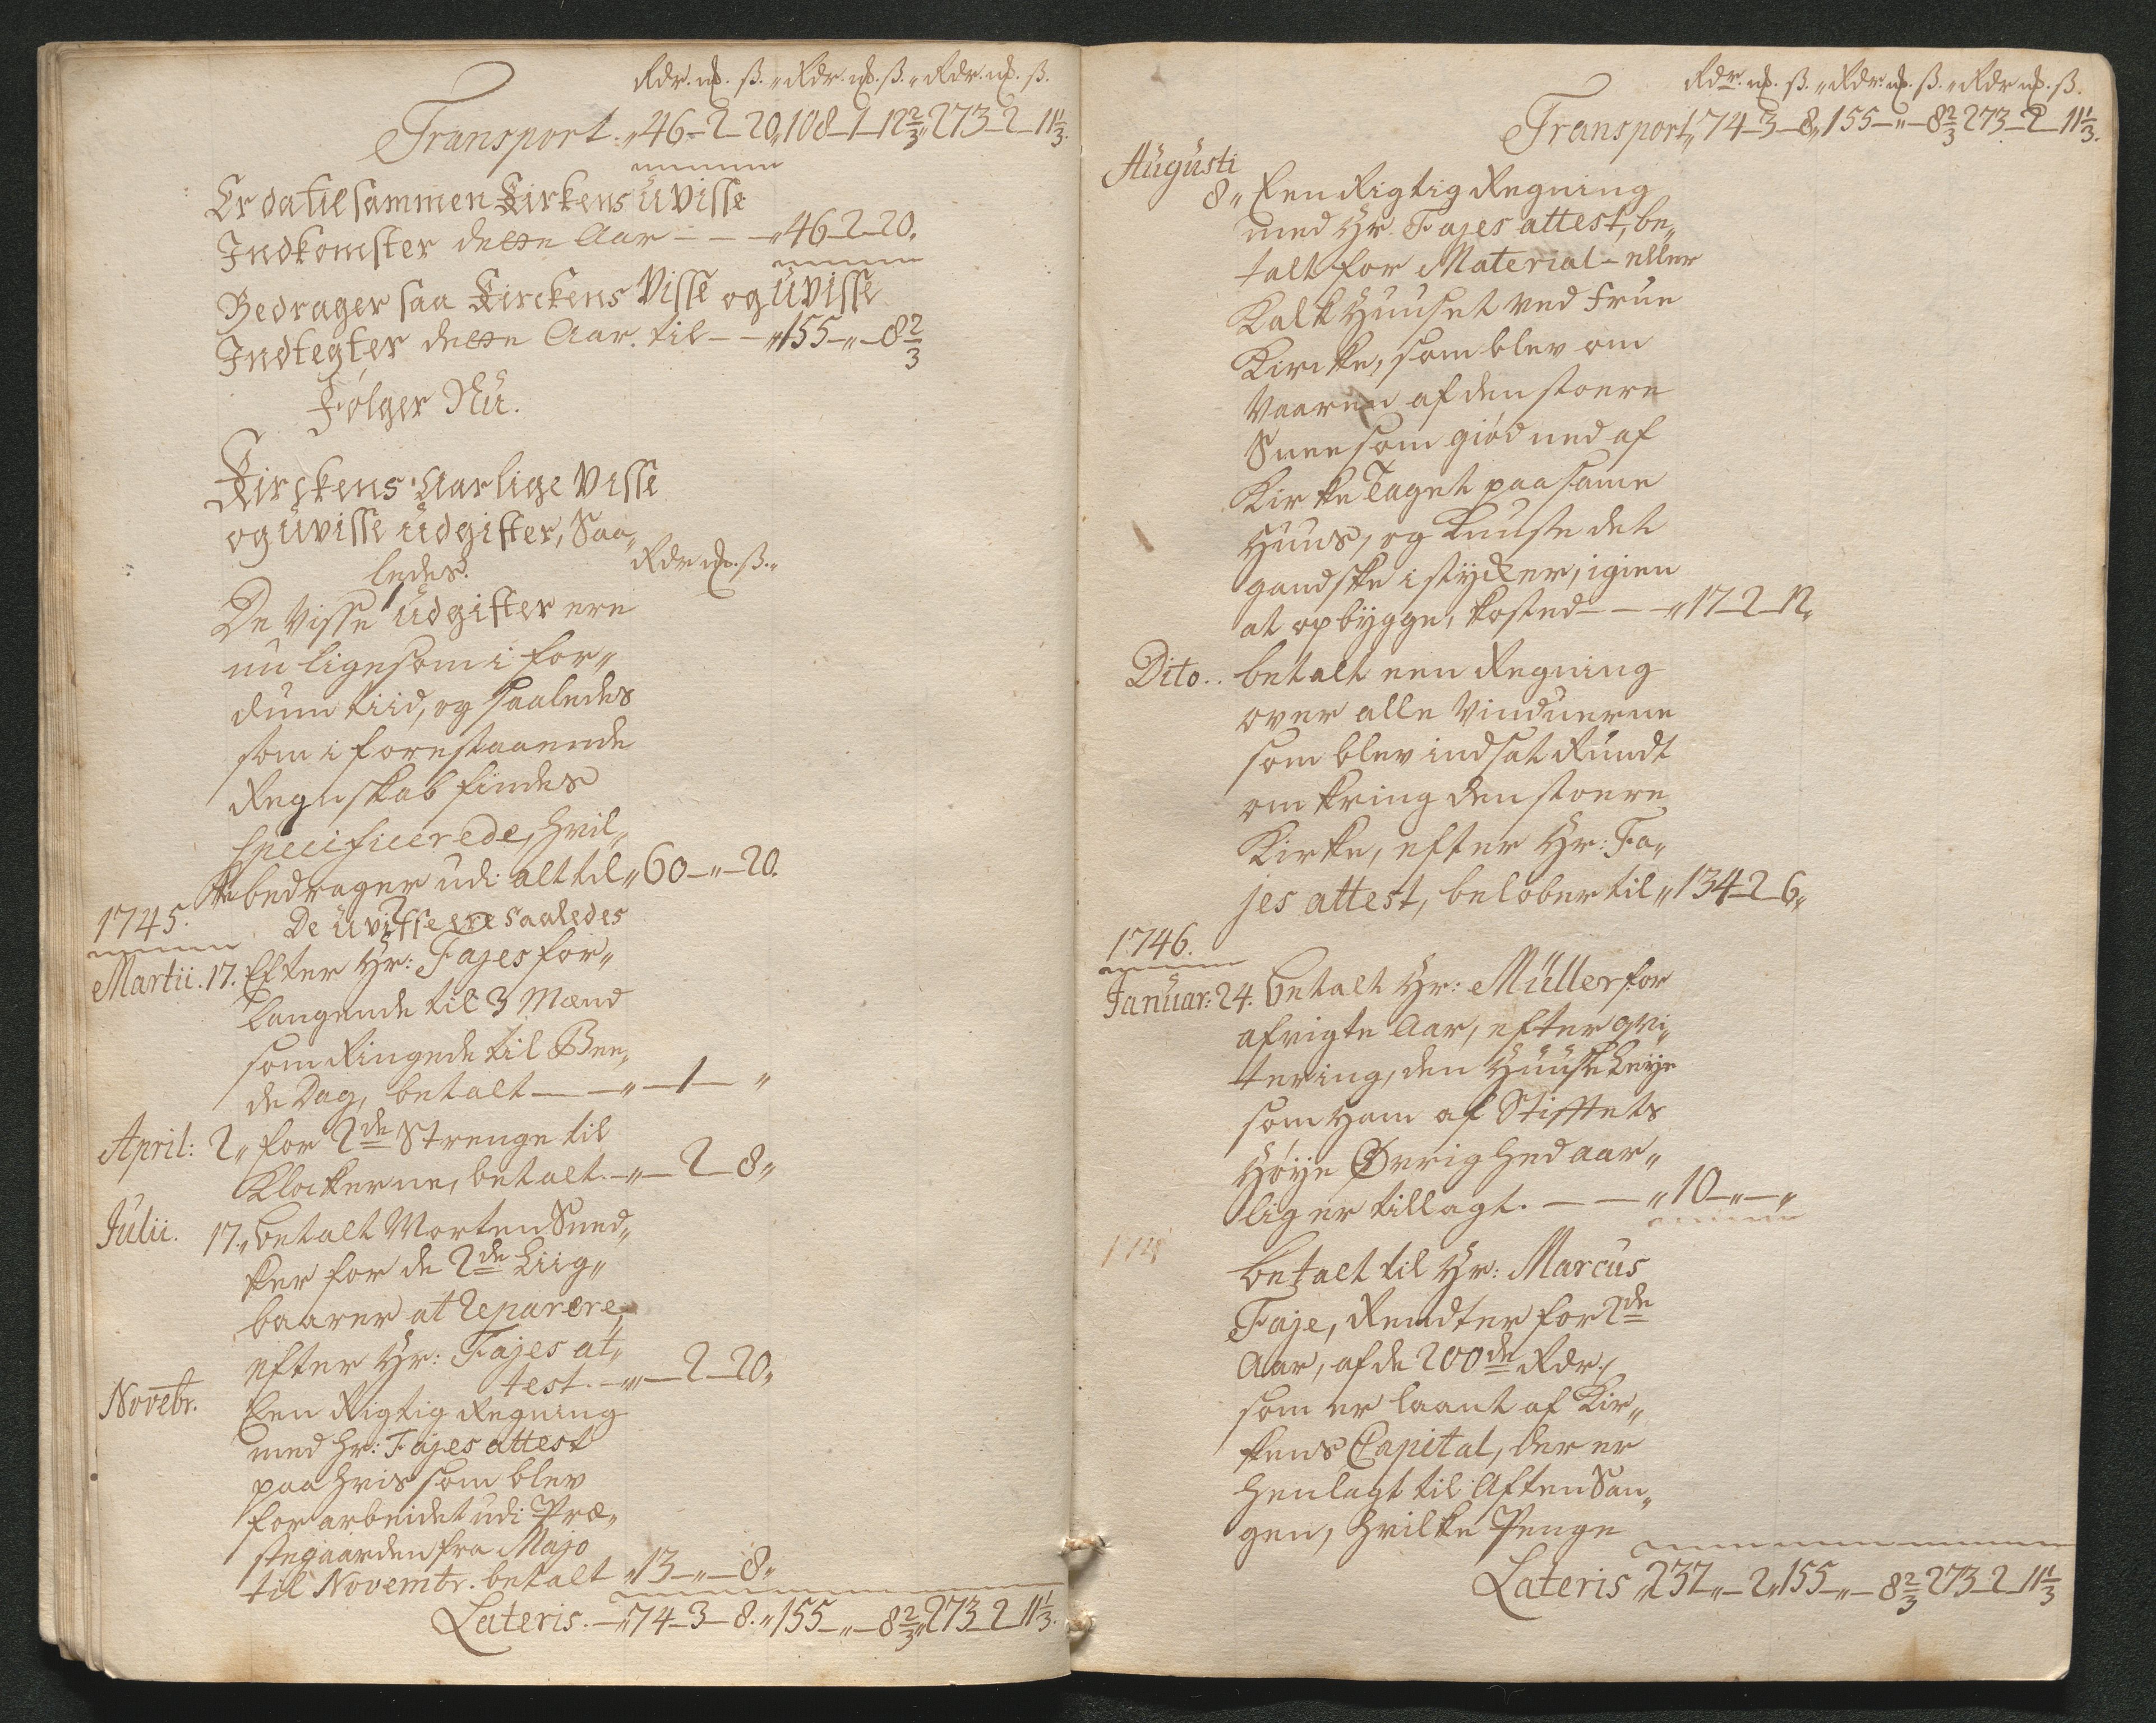 Rdr. mk. ß. „ Rdr. mk. ß. „ Rdr. mk. ß.
Transport. „ 46-2-20 „ 108-1-12 2/3 „ 273-2-11 1/3.
Er da tilsammen Kirkens uvisse
Indkomster dette Aar - - - „ 46-2-20.
Bedrager saa Kirckens Visse og uvisse
Indtegter dette Aar. til - - „ 155-„-8 2/3
Følger Nu.
Kirckens Aarlige visse
og uvisse udgifter, Saa„
ledes.
Rdr mk. ß. „
De Visse udgifter ere
nu ligesom i for„
dum tiid, og saaledes
som i forestaaende
Regnskab findes
specificerede, hvil„
ke bedrager udi alt til „ 60-„-20.
1745.
De uvisse ere saaledes
Martii. 17. Efter Hr: Fajes for„
langende til 3 Mænd
som Ringede til Bee„
de Dag, betalt - - „ - 1 - „
April: 2 „ for 2de Strenge til
Klockerne, betalt. - „ - 2 - 8 „
Julii. 17. „ betalt Morten Sned„
ker for de 2de Liig„
baarer at Reparere,
efter Hr: Fajes at„
test. - „ - 2 - 20 „
Novebr. Een Rigtig Regning
med Hr: Fajes attest
paa hvis som blev
forarbeidet udi Præ„
stegaarden fra Majo
til Novembr. betalt „ 13-„-8 „
Lateris. - „ 74-3-8. „ 155-„-8 2/3 „ 273-2-11 1/3.
Rdr. mk. ß. „ Rdr: mk. ß. „ Rdr mk. ß.
Transport „ 74-3-8 „ 155-„-8 2/3 273-2-11 1/3.
Augusti
8 „ Een Rigtig Regning
med Hr. Fajes attest, be„
talt for Material- eller
Kalk Huuset ved Frue
Kircke, som blev om
Vaaren af den stoere
Snee som giød ned af
Kirke Taget paa samme
Huus, og knuste det
gandske i stycker, igien
at opbygge, kosted - - - „ 17-2-12 „
Dito. . betalt een Regning
over alle Vinduerne
som blev indsat Rundt
omkring den stoere
Kirke, efter Hr: Fa„
jes attest, beløber til „ 134-2-6 „
1746.
Januar: 24. betalt Hr: Müller for
afvigte Aar, efter qvi„
tering, den Huuseleye
som ham af Stifftets
Høye Øvrighed aar„
lig er tillagt. - - - „ 10-„-„
174
betalt til Hr: Marcus
Faje, Rendter for 2de
Aar, af de 200de Rdr.
som er laant af Kir„
kens Capital, der er
henlagt til Aften San„
gen, hvilke Penge
Lateris „ 237„-2 „ 155-„-8 2/3 273-2-11 1/3